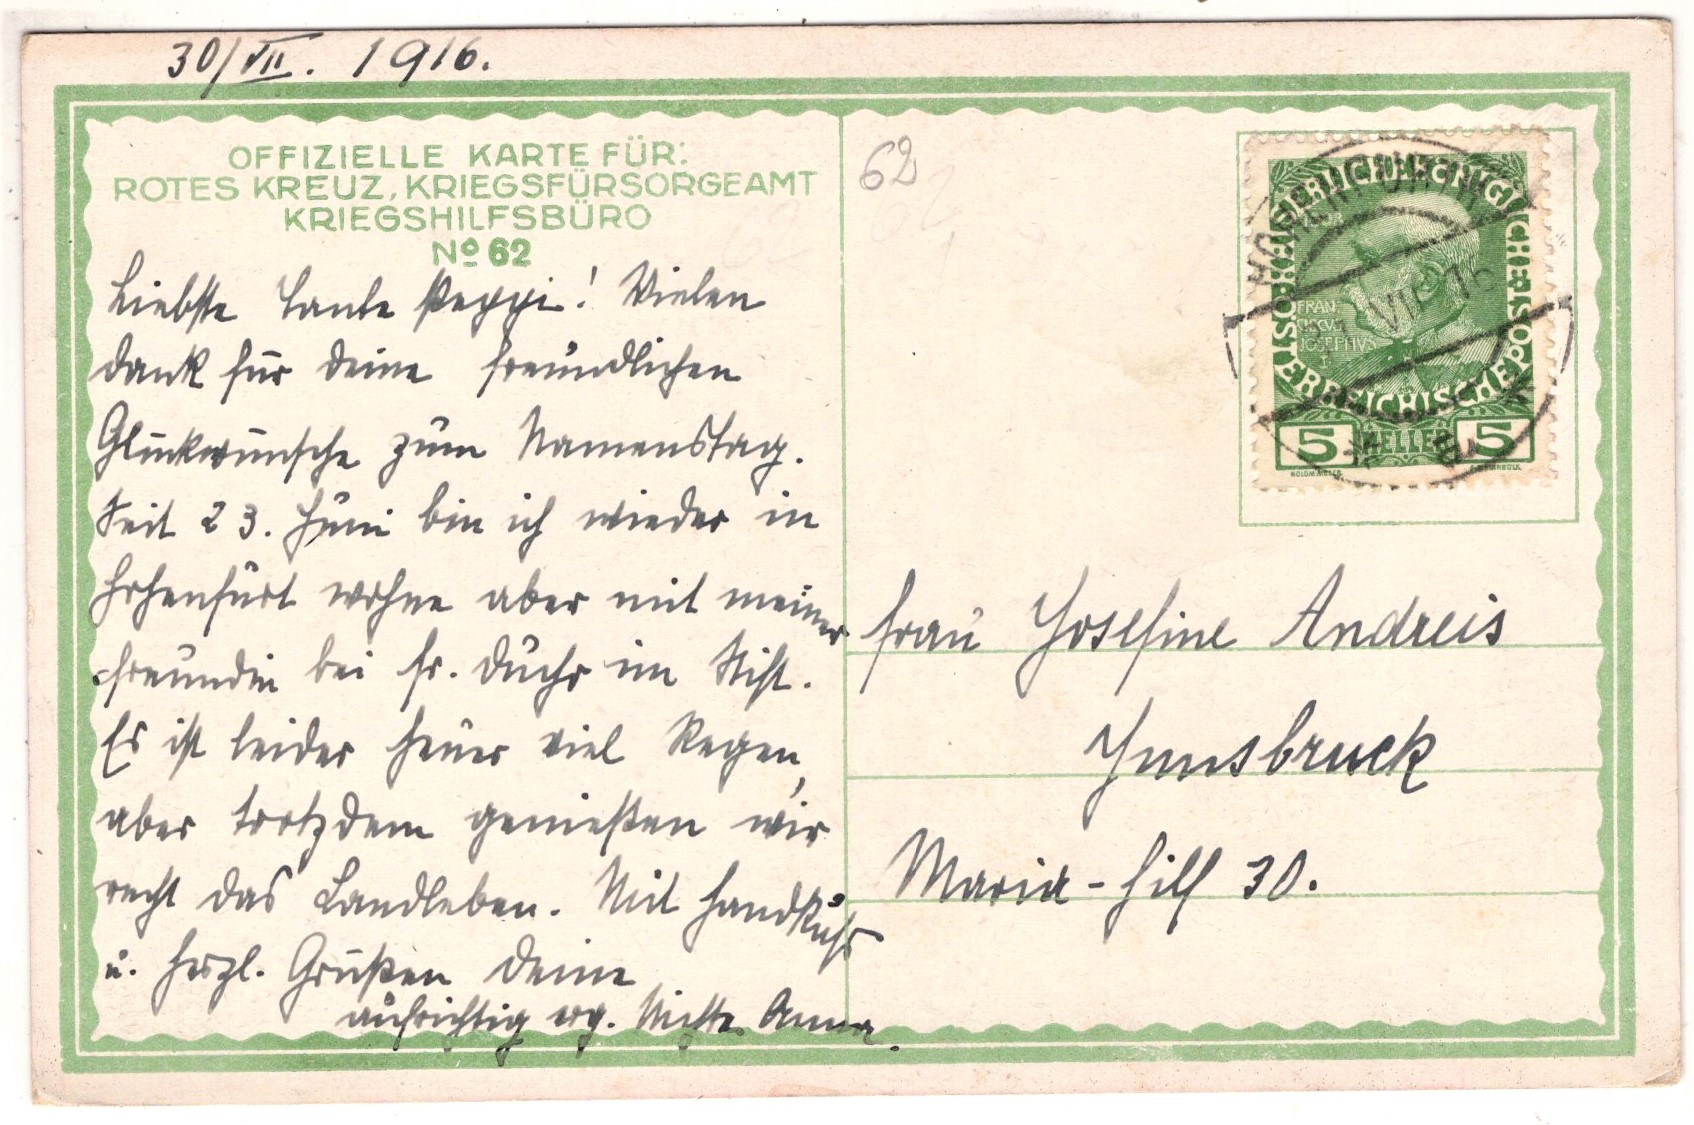 30/VII. 1916.
OFFIZIELLE KARTE FÜR:
ROTES KREUZ, KRIEGSFÜRSORGEAMT
KRIEGSHILFSBÜRO
No 62
Liebste Tante Peppi! Vielen
Dank für Deine freundlichen
Glückwünsche zum Namenstag.
Seit 23. Juni bin ich wieder in
Hohenfurt wohne aber mit meiner
Freundin bei Fr. im Stift.
Es ist leider heuer viel Regen,
aber trotzdem genießen wir
recht das Landleben. Mit Handkuss
u. herzl. Grüßen Deine
aufrichtig erg. Nichte Anna.
62
62
KAISERLICHE KÖNIGLICHE
ÖSTERREICHISCHE POST
FRAN
CISCVS
IOSEPHVS
5 HELLER 5
HOHENFURTH
VII 16
Frau Josefine Andreis
Innsbruck
Maria-hilf 30.